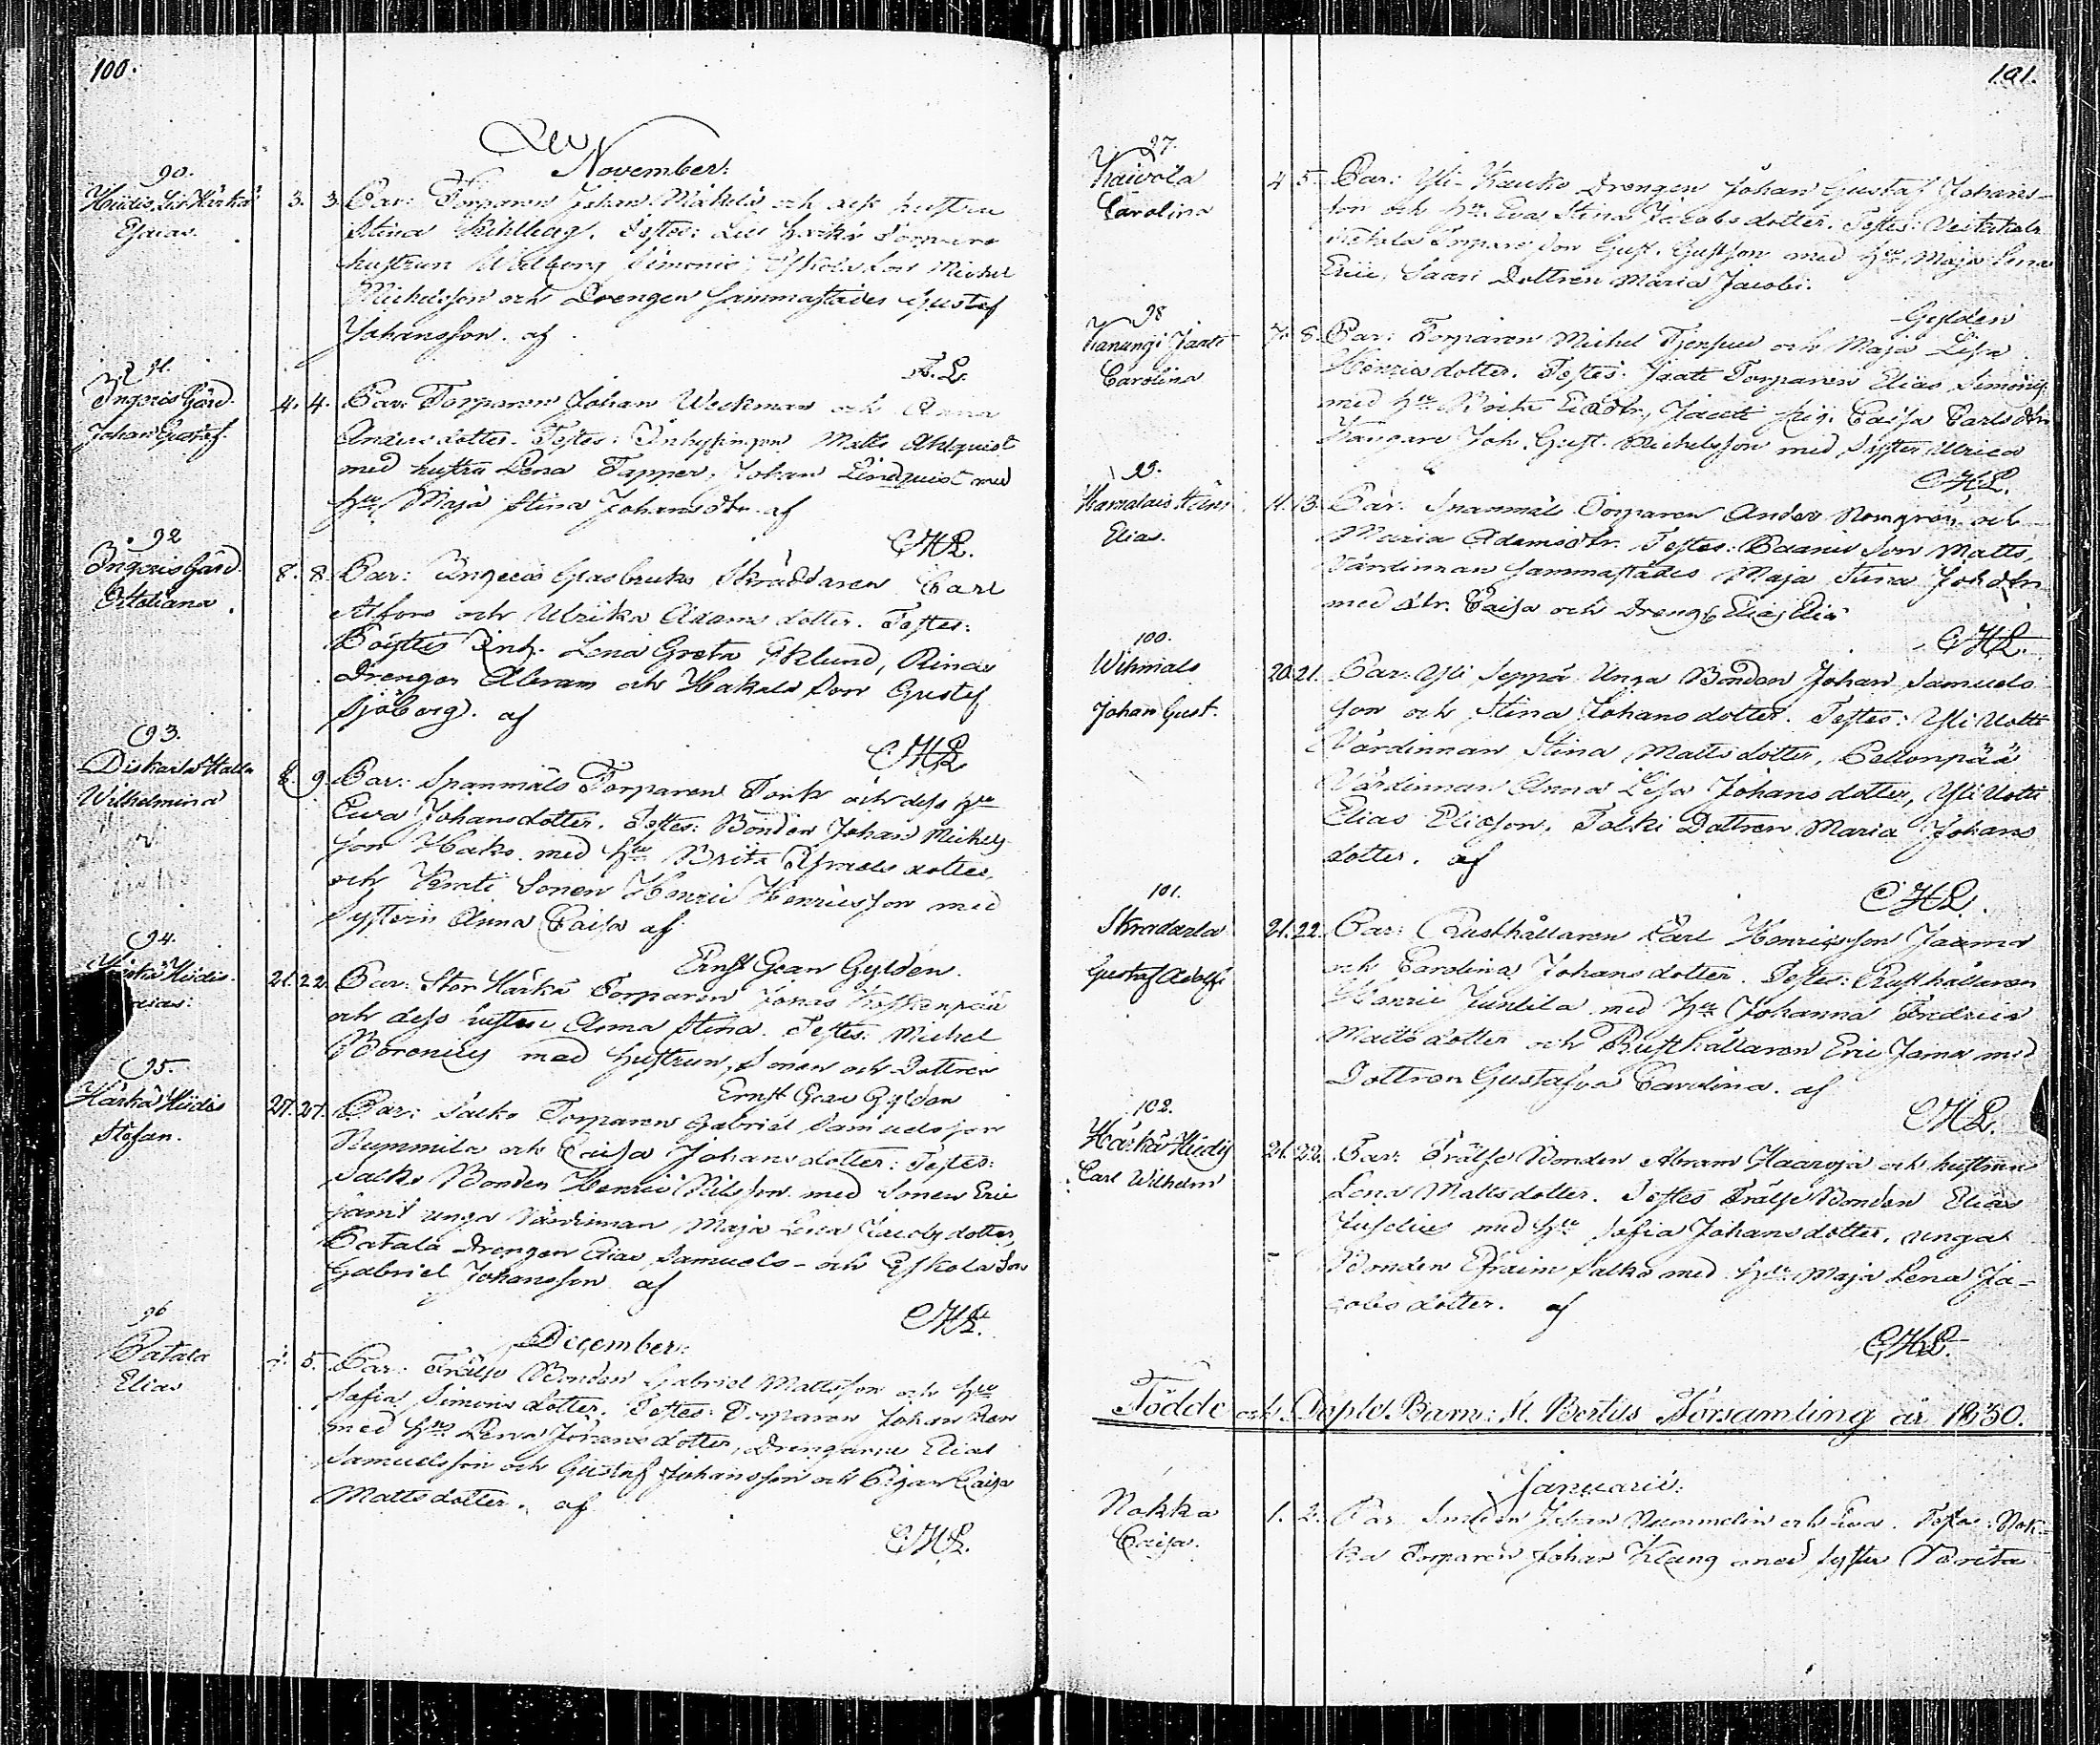 100.
November.
90.
Hiidis Lis Härkä
Esaias.
3. 3. Par: Torparen Johan Mäkelä och dess hustru
Stina Kihlberg. Testes: Lill Härkä Torpare
hustrun Walborg Simonis, Eskola Son Michel
Michelsson och Drengen sammastädes Gustaf
Johansson. af
F. L.
91.
Ingeris Gård.
Johan Gustaf.
4. 4. Par: Torparen Johan Weckman och Anna
Andersdotter. Testes: Inhysingen Matts Ahlquist
med hustru Lena Tapper, Johan Lindquist med
hu Maja Stina Johansdtr. af
CHL.
92
Ingeris Gård.
Vitaliana.
8. 8. Par: Ingeris Glasbruks Skräddaren Carl
Alfors och Ulrika Adams dotter. Testes:
Inh. Lena Greta Eklund,
Drengen Abram och Hakala Son Gustaf
Sjöberg. af
CHL
93.
Diskarla Kalla
Wilhelmina
8. 9. Par: Spanmåls Torparen Tork och dess hu
Ewa Johansdotter. Testes: Bonden Johan Michels
son Hako med hu Brita dotter,
och Sonen Henric Henricsson med
Systern Anna Caisa af
Ernst Gean Gyldén.
94.
Hiidis.
21. 22. Par: Stor Härkä Torparen Jonas Koskenpää
och dess hustru Anna Stina. Testes: Michel
med hustrun, Sonen och Dottren
Ernst Gean Gyldén
95.
Härkä Hiidis
Stefan.
27. 27. Par: Salko Torparen Gabriel Samuelsson
Nummila och Caisa Johans dotter: Testes:
Salko Bonden Henric Nilsson med Sonen Eric
samt unga Värdinnan Maja Lena Jacobs dotter,
Patala Drengen Elias Samuels- och Eskola Son
Gabriel Johansson af
CHL.
December:
96
Patala
Elias
5. Par: Frälse Bonden Gabriel Mattsson och hu
Sofia Simons dotter. Testes: Torparen Johan
med hu Lena Johans dotter, Drengarne Elias
Samuelsson och Gustaf Johansson och Pigan Caisa
Mattsdotter. af
CHL.
101.
97.
Kaivola
Carolina
4. 5. Par: Yli-Kauko Drengen Johan Gustaf Johans-
son och hu Eva Stina Jacobs dotter. Testes:
Torpare Son Gust. Gustsson med hu Maja Lena
Eric, Saari Dottren Maria Jacobi.
Gyldén
98
Kanungi Jaati
Carolina
7. 8. Par: Torparen Michel och Maja Lisa
Henrics dotter. Testes: Jaati Torparen Elias Simons
med hu Brita, Jaati Pig. Caisa Carlsdtr,
Joh. Gust. Michelsson med Syster Ulrica
CHL.
99.
Elias.
11. 13. Par: Spanmåls Torparen Anders och
Maria Adamsdtr. Testes: Son Matts,
Värdinnan sammastädes Maja Stina Johdtr
med dtr. Caisa och Dreng Elias
CHL.
100.
Wihmals
Johan Gust.
20. 21. Par: Yli Seppä Unga Bonden Johan Samuels
son och Stina Johans dotter. Testes: Yli Uotti
Värdinnan Stina Matts dotter, Pellonpää
Värdinnan Anna Lisa Johans dotter, Yli Uotti
Elias Eliesson, Talki Dottren Maria Johans
dotter. af
CHL.
101.
Skradarla
Gustaf Adolf.
21. 22. Par: Rusthållaren Carl Henricsson Jaama
och Carolina Johans dotter. Testes: Rusthållaren
Henric Juntila med hu Johanna Fredrica
Matts dotter och Rusthållaren Eric Jama med
Dottren Gustafva Carolina. af
CHL.
102.
Härkä Hiidis
Carl Wilhelm
21. 22. Par: Frälse Bonden Abram Haaroja och hustrun
Lena Matts dotter. Testes Frälse Bonden Elias
med hu Sofia Johans dotter, unga
Bonden Efraim Salko med hu Maja Lena Ja-
cobs dotter. af
CHL.
Födde och Döpte Barn i St. Bertils Församling år 1830.
Januarii:
Nokka
Caisa.
1. 2. Par: Smeden Johan Nummelin och Eva. Testes: Nok-
ka Torparen Johan Klang med Syster Brita